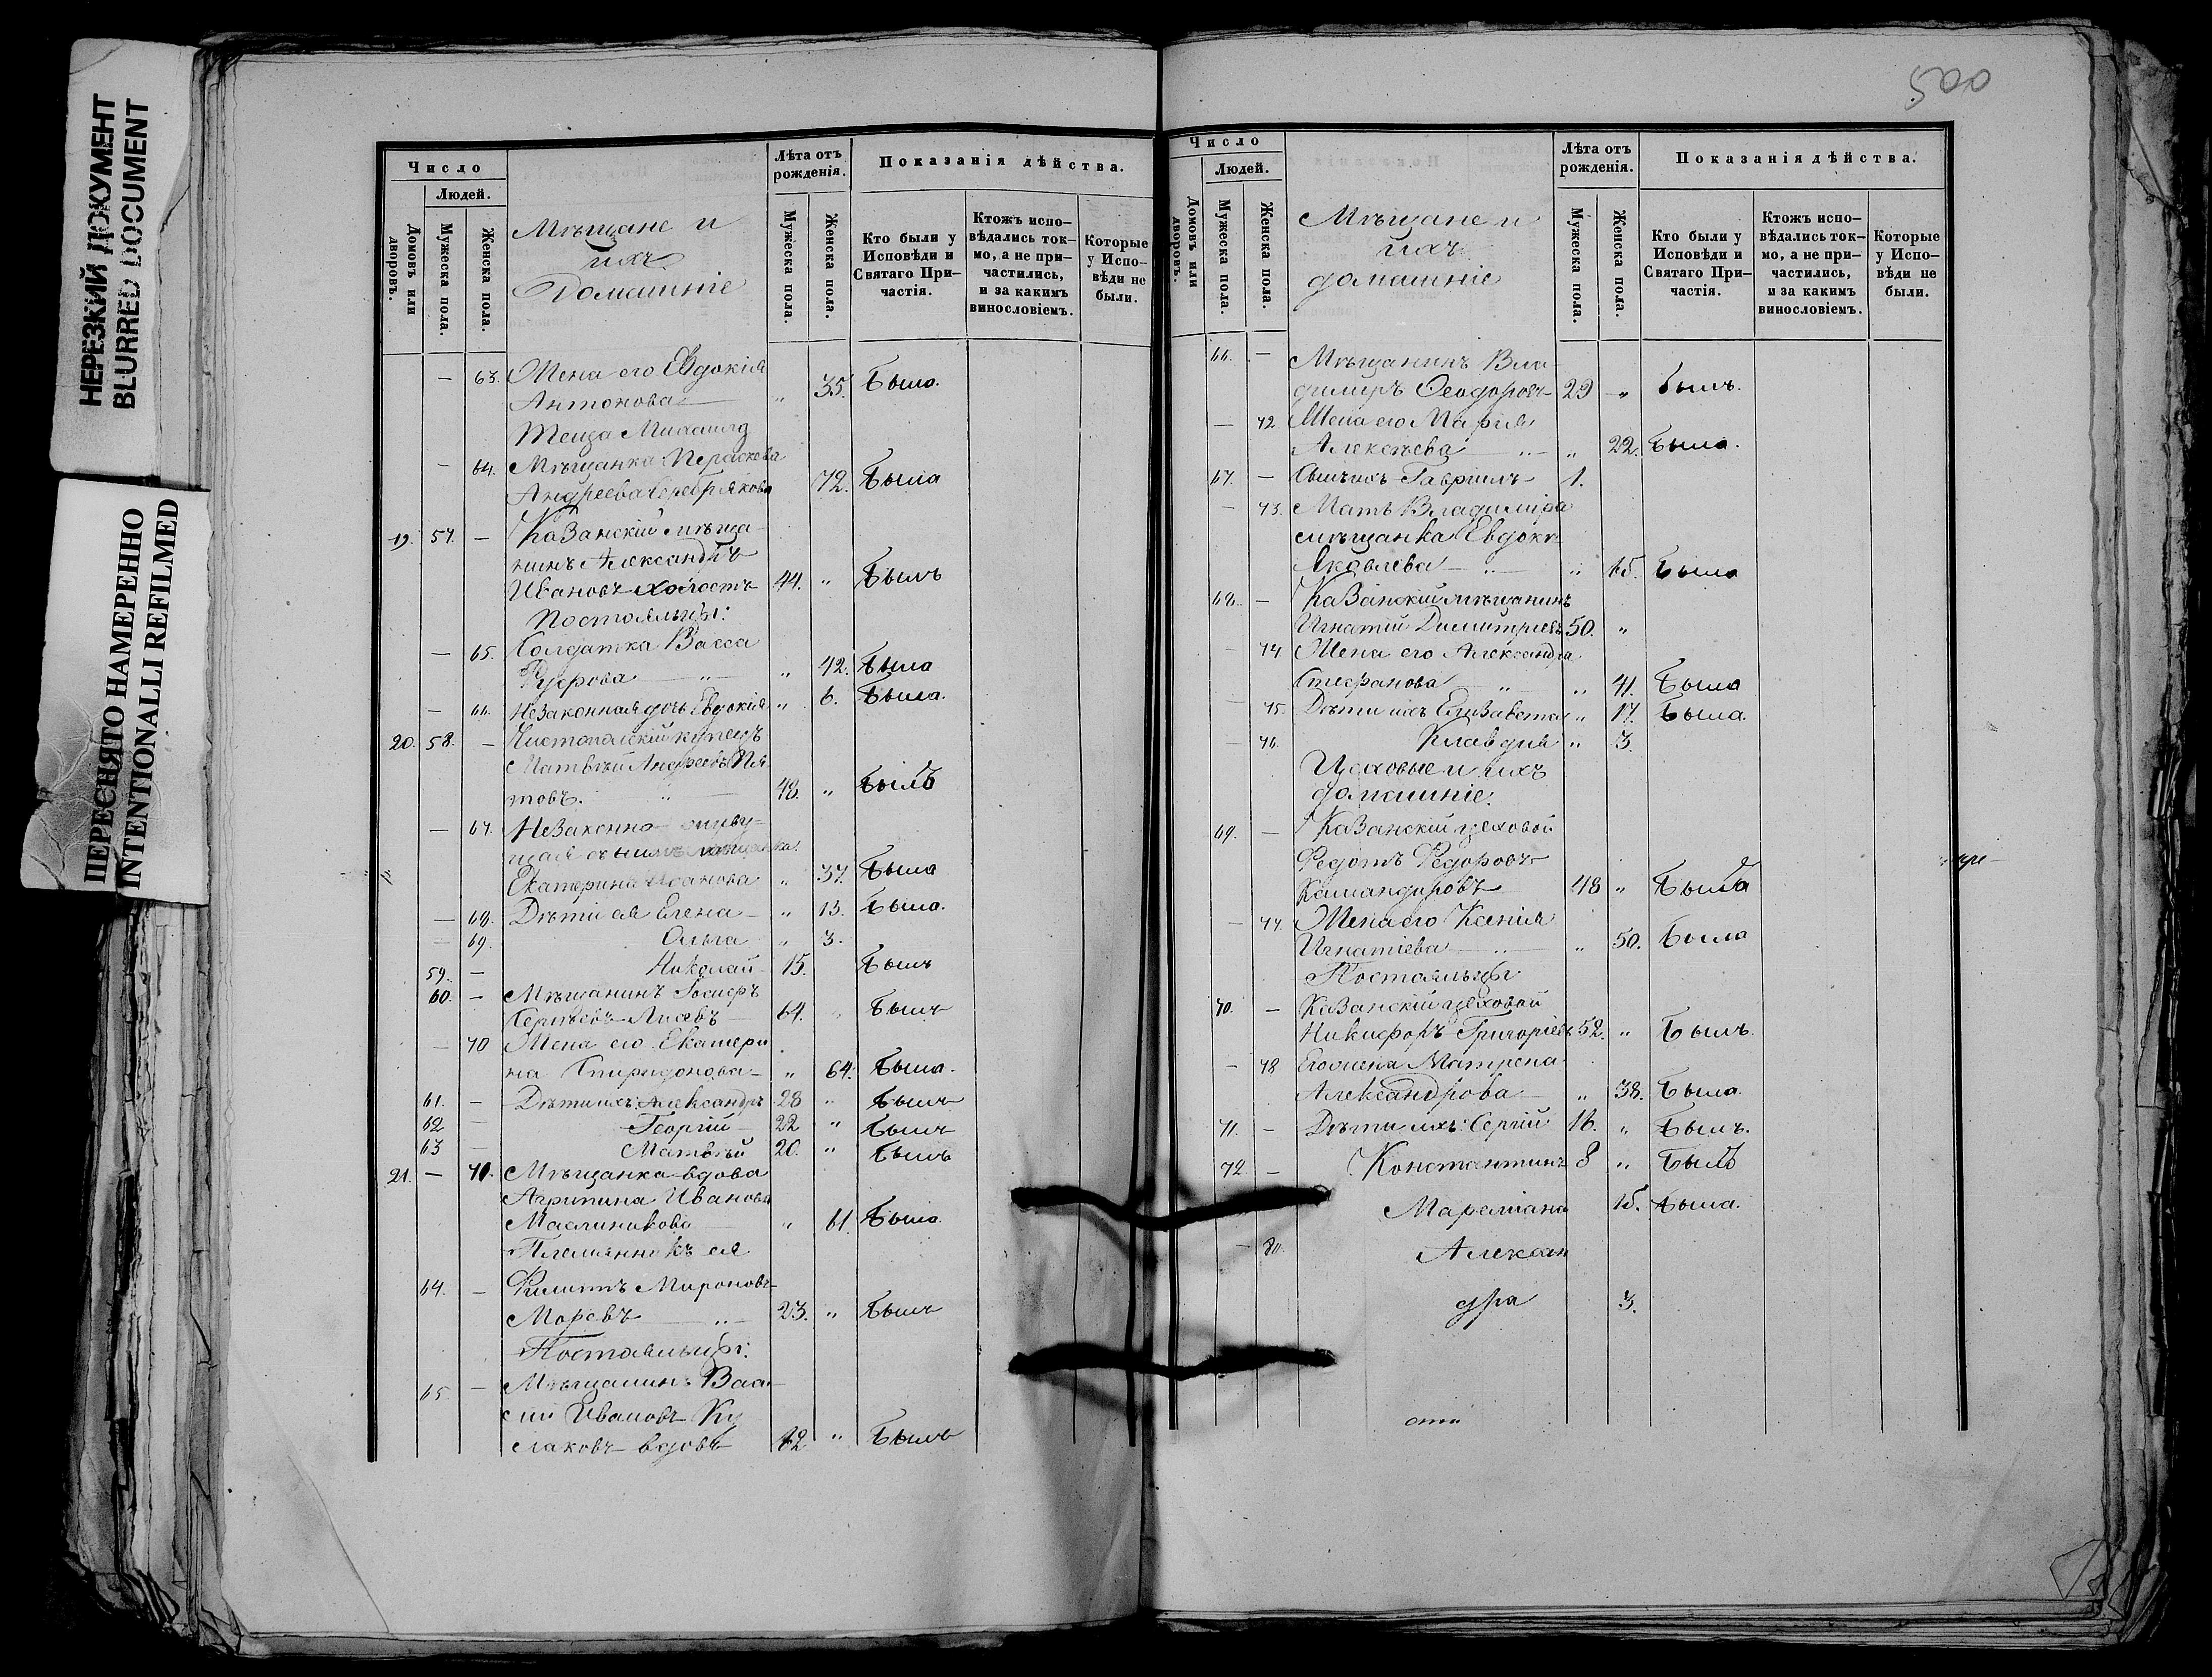 НЕРЕЗКИЙ ДОКУМЕНТ
BLURRED DOCUMENT
ПЕРЕСНЯТО НАМЕРЕННО
INTENTIONALLI REFILMED
Число
Людей.
Домовъ или дворовъ.
Мужеска пола.
Женска пола.
Мѣщане и
ихъ
Домашніе
Лѣта отъ рожденія.
Мужеска пола.
Женска пола.
Показанія дѣйства.
Кто были у Исповѣди и Святаго При-частія.
Ктожъ испо-вѣдались ток-мо, а не при-частились, и за какимъ винословіемъ.
Которые у Испо-вѣди не были.
— 63. Жена его Евдокія
Антонова „ 35. Была.
Теща Михаила
— 64. Мѣщанка Параскева
Андреева Серебрякова 72. Была
19. 57. — Казанскій мѣща-
нинъ Александръ
Ивановъ холостъ 44. „ Былъ
Постояльцы:
— 65. Солдатка Васса
Ѳедорова „ 42. Была
— 66. Незаконная дочь Евдокія „ 6. Была.
20. 58. — Чистопольскій купецъ
Матвѣй Андреевъ Пя-
товъ. 48. „ Былъ
— 67. Незаконно живу-
щая съ нимъ мѣщанка
Екатерина Иванова „ 37. Была
— 68. Дѣти ея Елена — „ 13. Была.
— 69. Ольга „ 3.
59. — Николай 15. Былъ
60. — Мѣщанинъ
Сергѣевъ 64. „ Былъ
— 70 Жена его Екатери
на Спиридонова — „ 64. Была.
61. — Дѣти ихъ: Александръ 28 „ Былъ
62 — Георгій 22 „ Былъ
63 — Матвѣй 20. „ Былъ
21. — 71. Мѣщанка вдова
Агрипина Иванова
Масленикова „ 61. Была.
Племянникъ ея
64. — Филиппъ Мироновъ
Моревъ 23. „ Былъ
Постояльцы:
65 — Мѣщанинъ Васи-
лій Ивановъ Ку
лаковъ вдовъ 62 „ Былъ
500
Число
Людей.
Домовъ или дворовъ.
Мужеска пола.
Женска пола.
Мѣщане и
ихъ
домашніе
Лѣта отъ рожденія.
Мужеска пола.
Женска пола.
Показанія дѣйства.
Кто были у Исповѣди и Святаго При-частія.
Ктожъ испо-вѣдались ток-мо, а не при-частились, и за какимъ винословіемъ.
Которые у Испо-вѣди не были.
66. — Мѣщанинъ Вла
димиръ Ѳеодоровъ 29 „ Былъ.
— 72. Жена его Марія
Алексѣева „ 22. Была.
67. — Сынъ ихъ Гавріилъ 1.
— 73. Мать Владиміра
мѣщанка Евдокія
Яковлева „ 65. Была
68. — Казанскій мѣщанинъ
Игнатій Димитріевъ 50. „
— 74 Жена его Александра
Стефанова „ 41. Была
— 75. Дѣти ихъ Елизавета „ 17. Была.
— 76. Клавдія „ 3.
Цеховые и ихъ
домашніе.
69. — Казанскій цеховой
Федотъ Федоровъ
Камандировъ 48 „ Былъ
— 77. Жена его Ксенія
Игнатіева „ 50. Была
Постояльцы
70. — Казанскій цеховой
Никифоръ Григоріевъ 52. „ Былъ.
— 78 Его жена Матрена
Александрова „ 38. Была.
71. — Дѣти ихъ: Сергій 16. „ Былъ.
72 — Константинъ 8 „ Былъ
Мареміана 15. Была.
— 80. Алексан
дра 3.